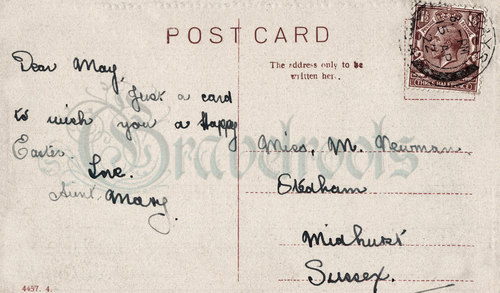 POST CARD
The address only to be
written here.
Dear May,
Just a card
to wish you a Happy
Easter.
Love.
Aunt Mary.
Gravelroots
Miss, M. Newman
Stedham
Midhurst
Sussex.
4457. 4.